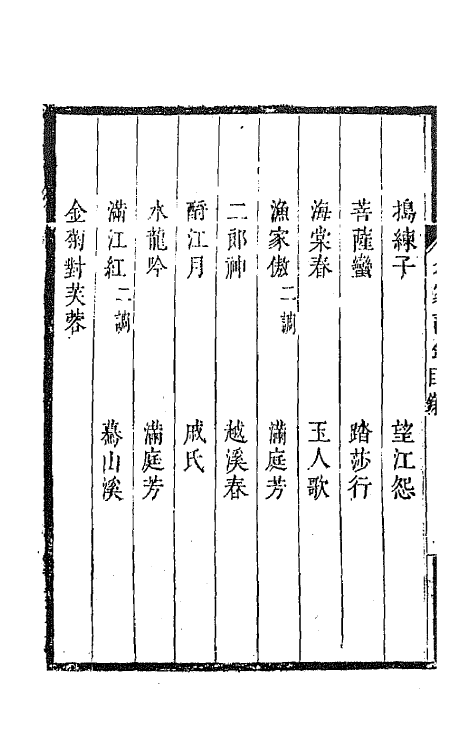 搗練子　望江怨
菩薩蠻　踏莎行
海棠春　玉人歌
漁家傲二調　滿庭芳
二郎神　越溪春
酹江月　戚氏
水龍吟　滿庭芳
滿江紅二調　驀山溪
金菊對芙蓉